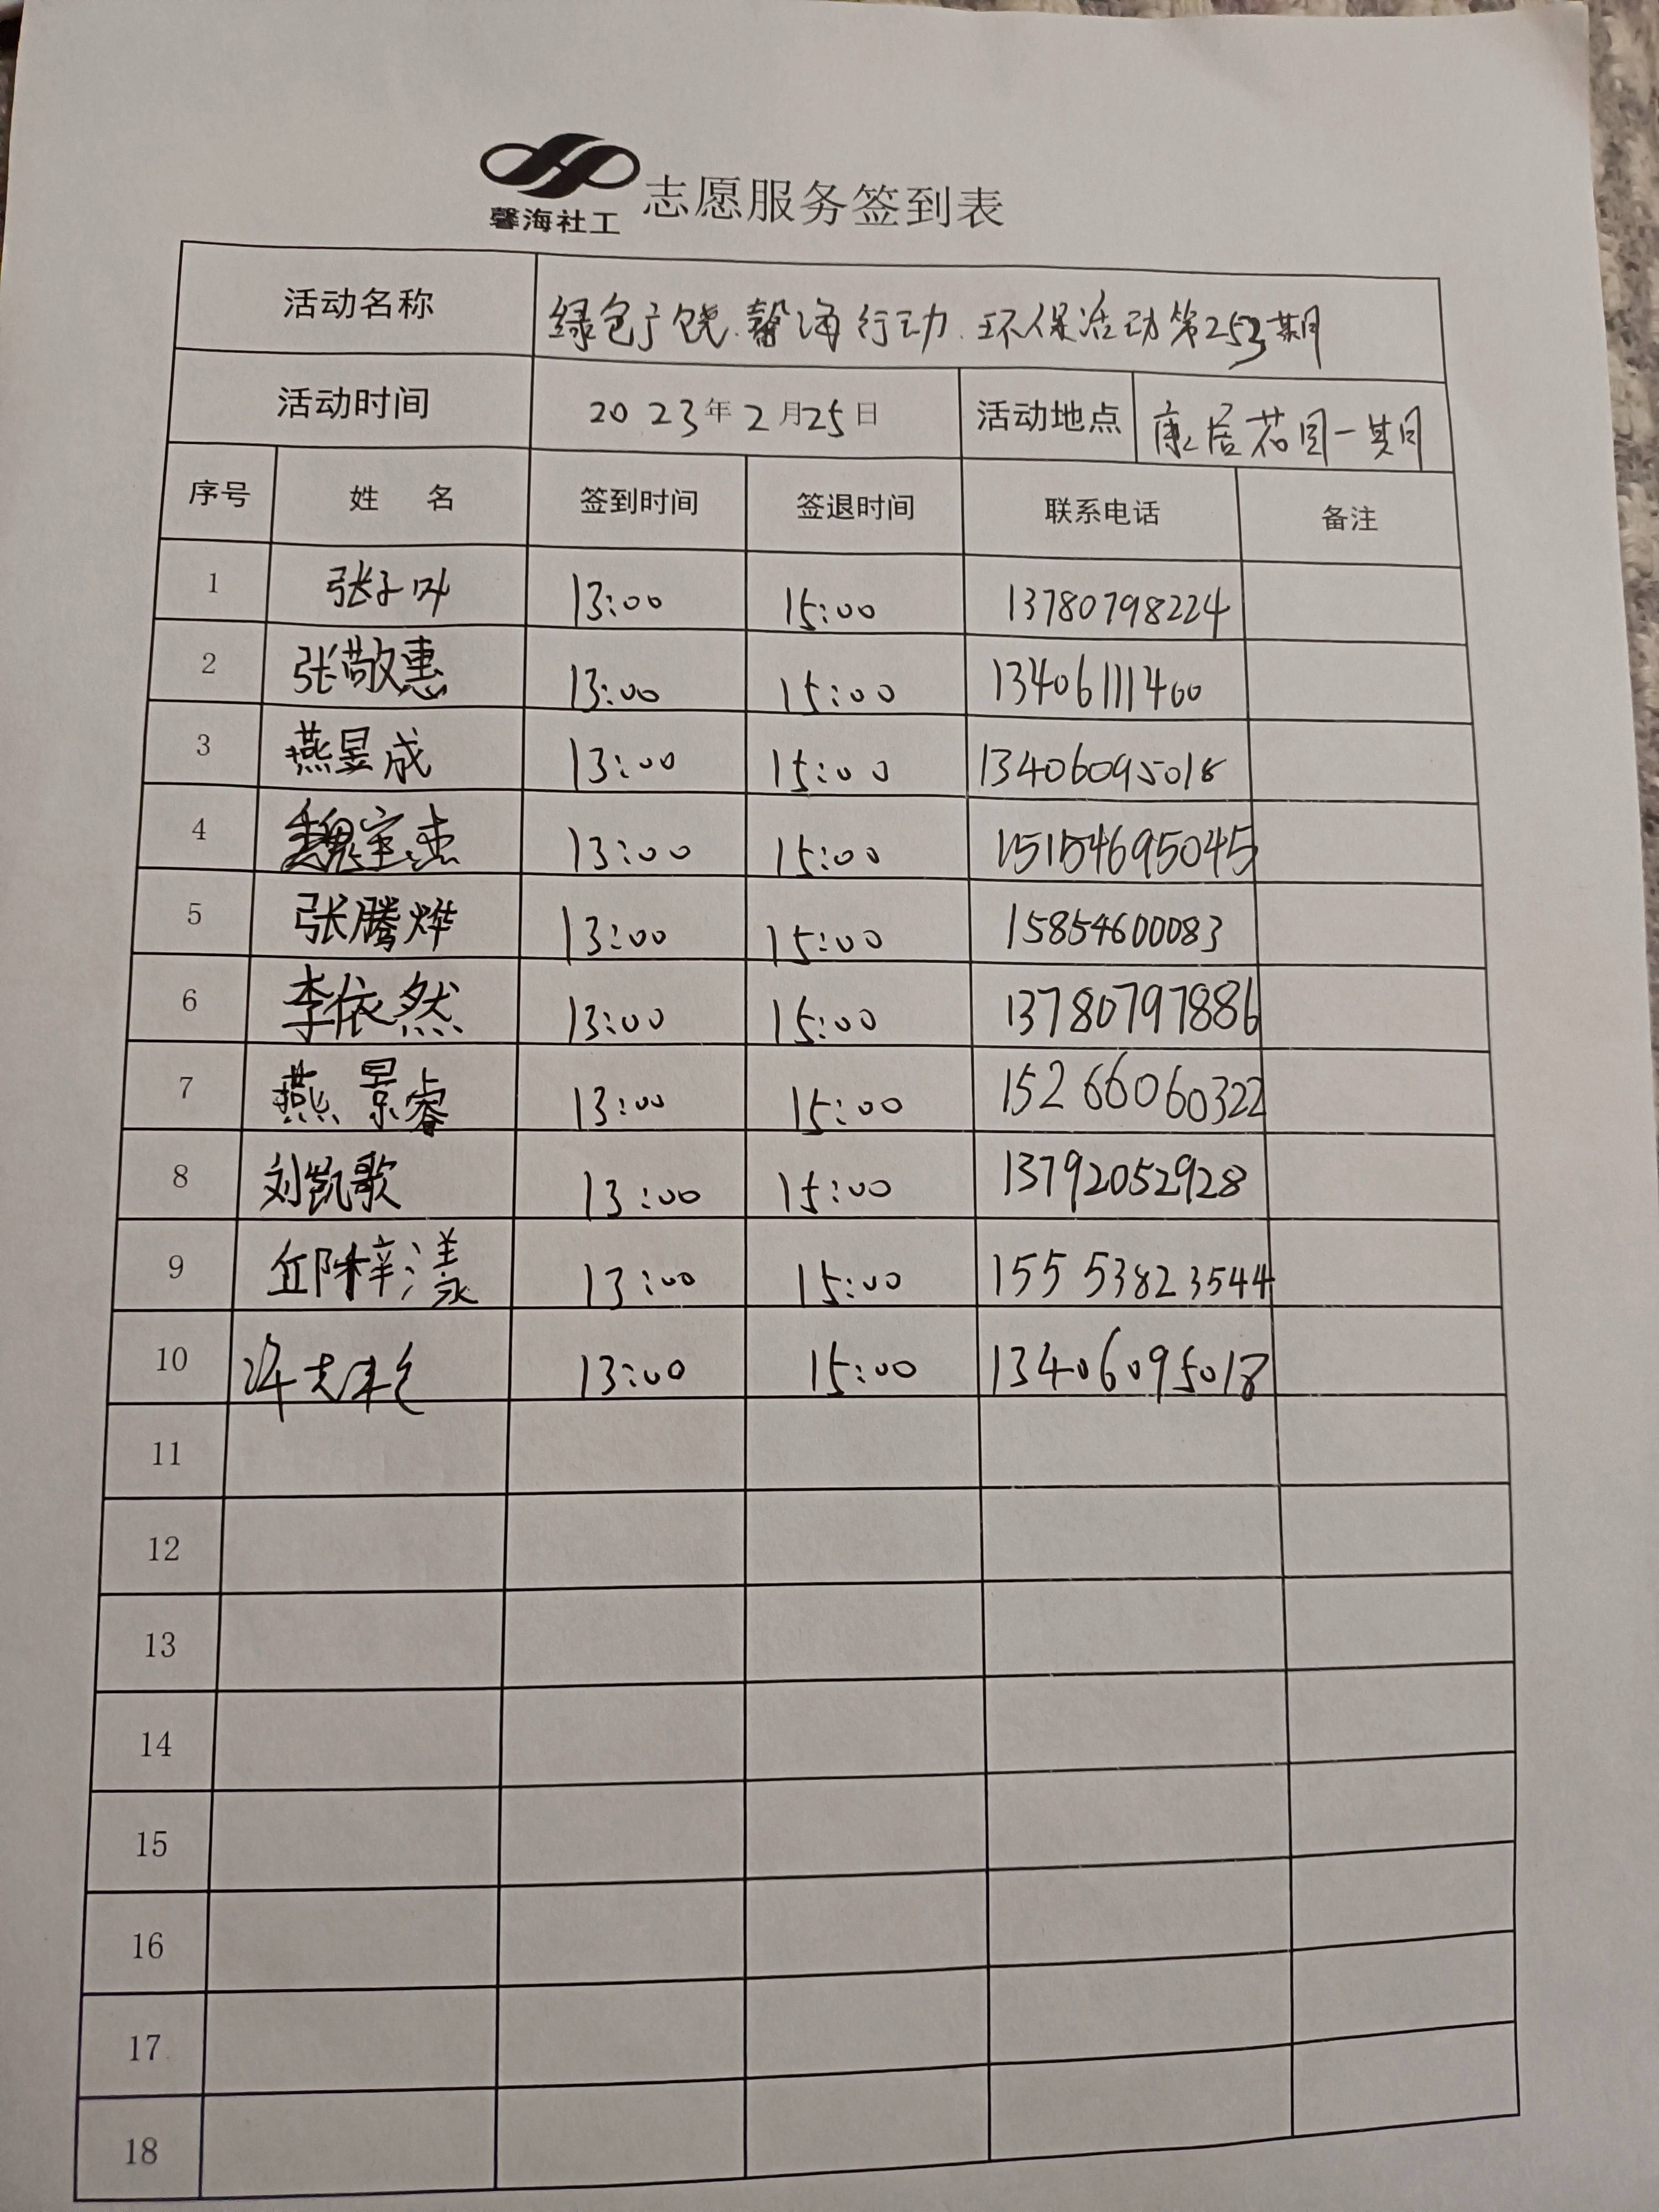 馨海社工
志愿服务签到表
活动名称 绿色广饶.馨海行动.环保活动第253期
活动时间 2023年2月25日 活动地点 康居花园一期
序号 姓 名 签到时间 签退时间 联系电话 备注
1 张子叶 13:00 15:00 13780798224
2 张敬惠 13:00 15:00 13406111400
3 燕昱成 13:00 15:00 13406095018
4 魏室杰 13:00 15:00 15154695045
5 张腾烨 13:00 15:00 15854600083
6 李依然 13:00 15:00 13780797886
7 燕景睿 13:00 15:00 15266060322
8 刘凯歌 13:00 15:00 13792052928
9 丘陈梓漾 13:00 15:00 15553823544
10 13:00 15:00 13406095018
11
12
13
14
15
16
17
18